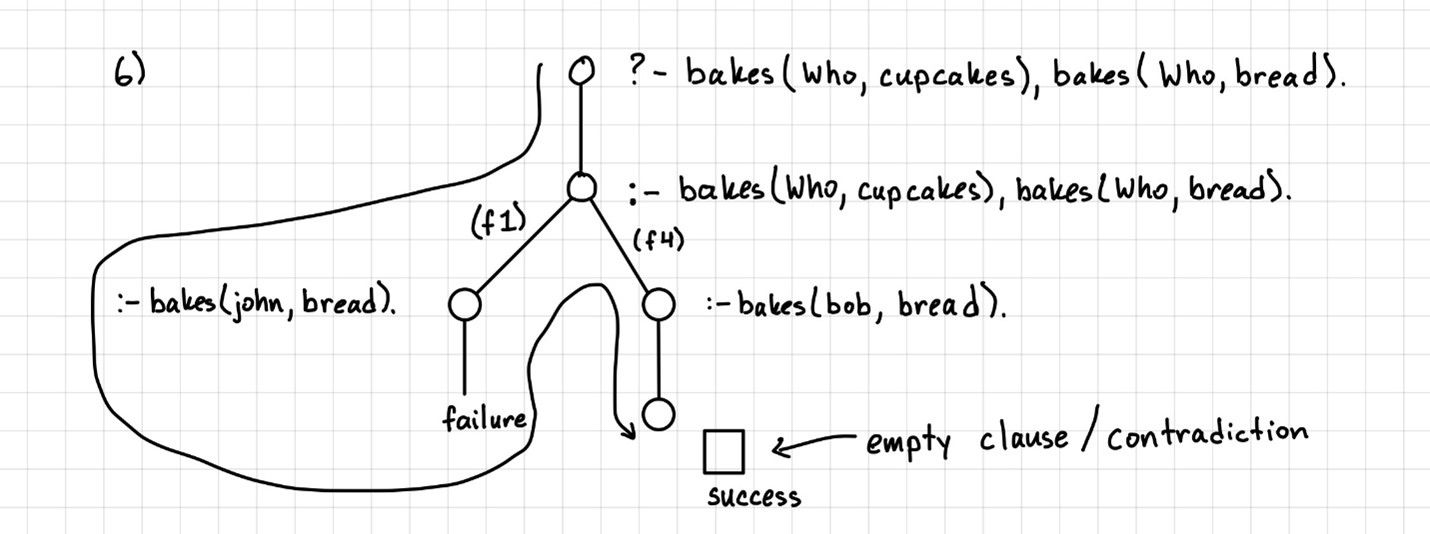 6)
? - bakes(Who, cupcakes), bakes(Who, bread).
:- bakes(Who, cupcakes), bakes(Who, bread).
(f1)
(f4)
:- bakes(john, bread).
:- bakes(bob, bread).
failure
empty clause / contradiction
success